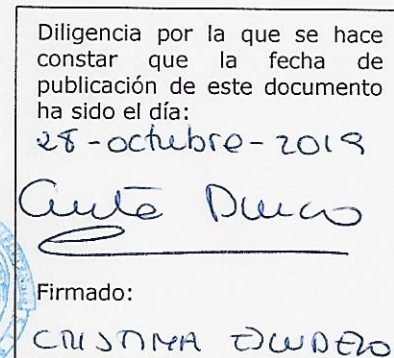 Diligencia por la que se hace
constar que la fecha de
publicación de este documento
ha sido el día:
28-octubre-2019
Firmado:
CRISTINA ESCUDERO